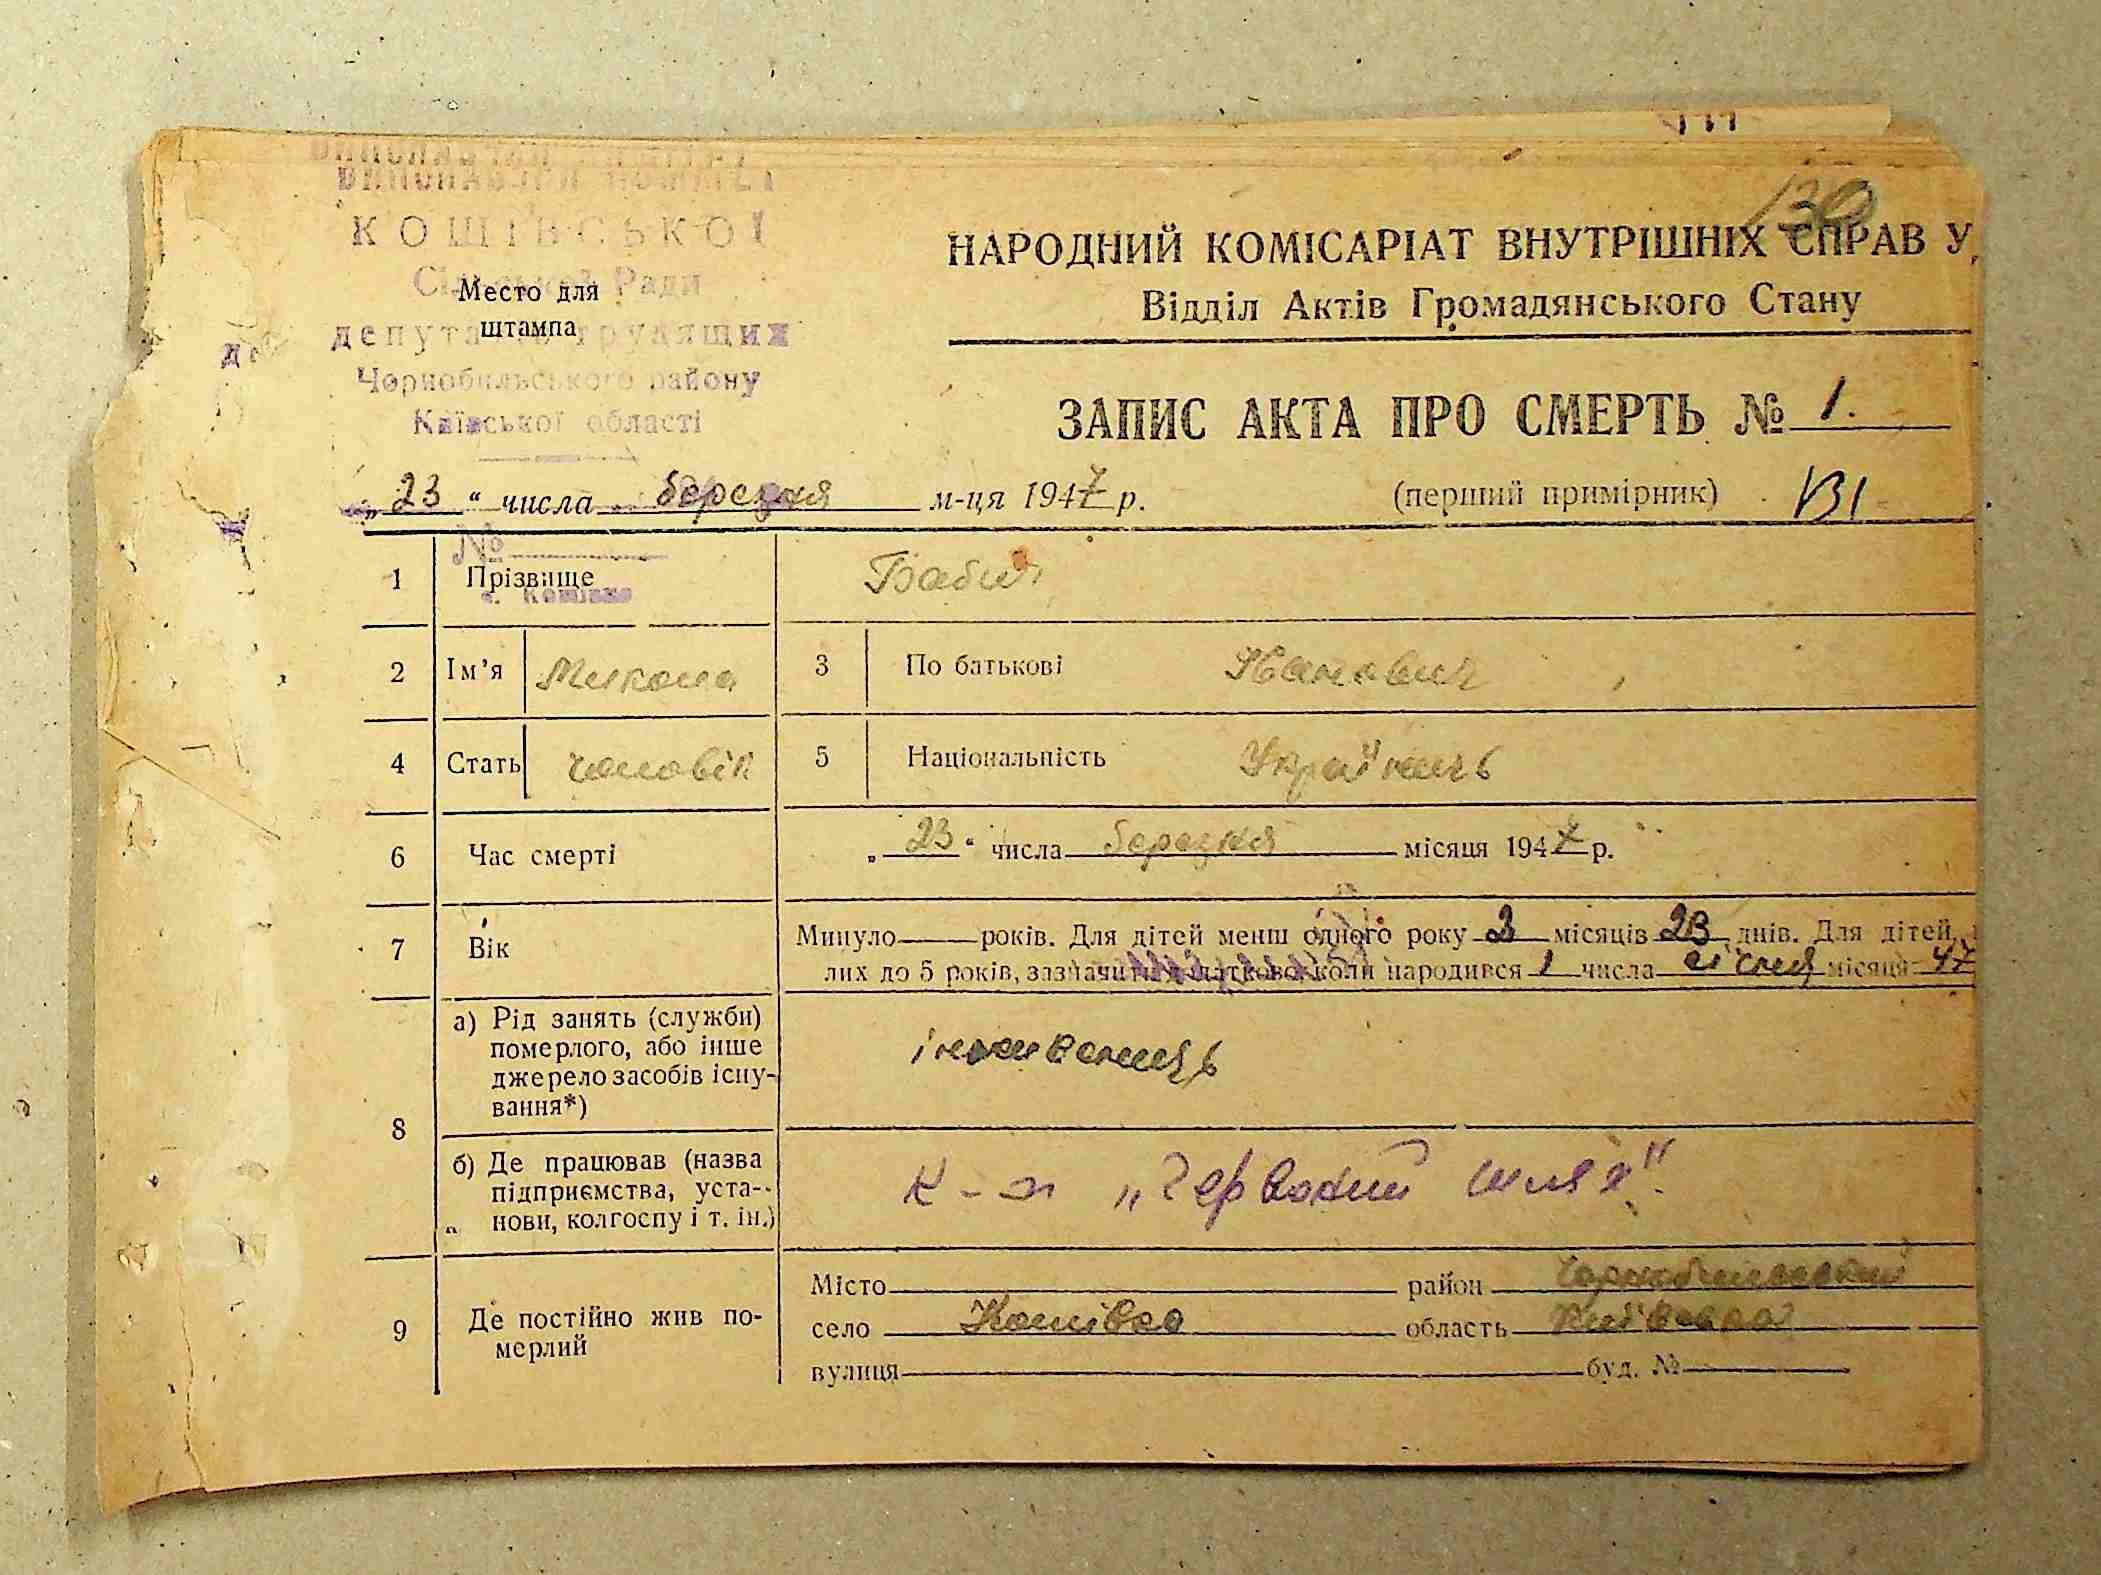 ВИКОНАВЧИЙ КОМІТЕТ
КОШІВСЬКОЇ
Сільської Ради
депутатів трудящих
Чорнобильського району
Київської області
Место для
штампа
130
НАРОДНИЙ КОМІСАРІАТ ВНУТРІШНІХ СПРАВ У
Відділ Актів Громадянського Стану
ЗАПИС АКТА ПРО СМЕРТЬ № 1.
„23“ числа березня м-ця 1947 р.
(перший примірник) 131
№
1 Прізвище
с. Кошівка
2 Ім’я Микола 3 По батькові Іванович
4 Стать чоловік 5 Національність Українець
6 Час смерті „23“ числа березня місяця 1947 р.
7 Вік Минуло — років. Для дітей менш одного року 2 місяців 23 днів. Для дітей,
лих до 5 років, зазначити додатково, коли народився 1 числа січня місяця 47
8 а) Рід занять (служби)
померлого, або інше
джерело засобів існу-
вання*)
утриманець
б) Де працював (назва
підприємства, уста-
нови, колгоспу і т. ін.)
к-п „Червоний шлях“
9 Де постійно жив по-
мерлий
Місто район Чорнобильський
село Кошівка область Київська
вулиця буд. №